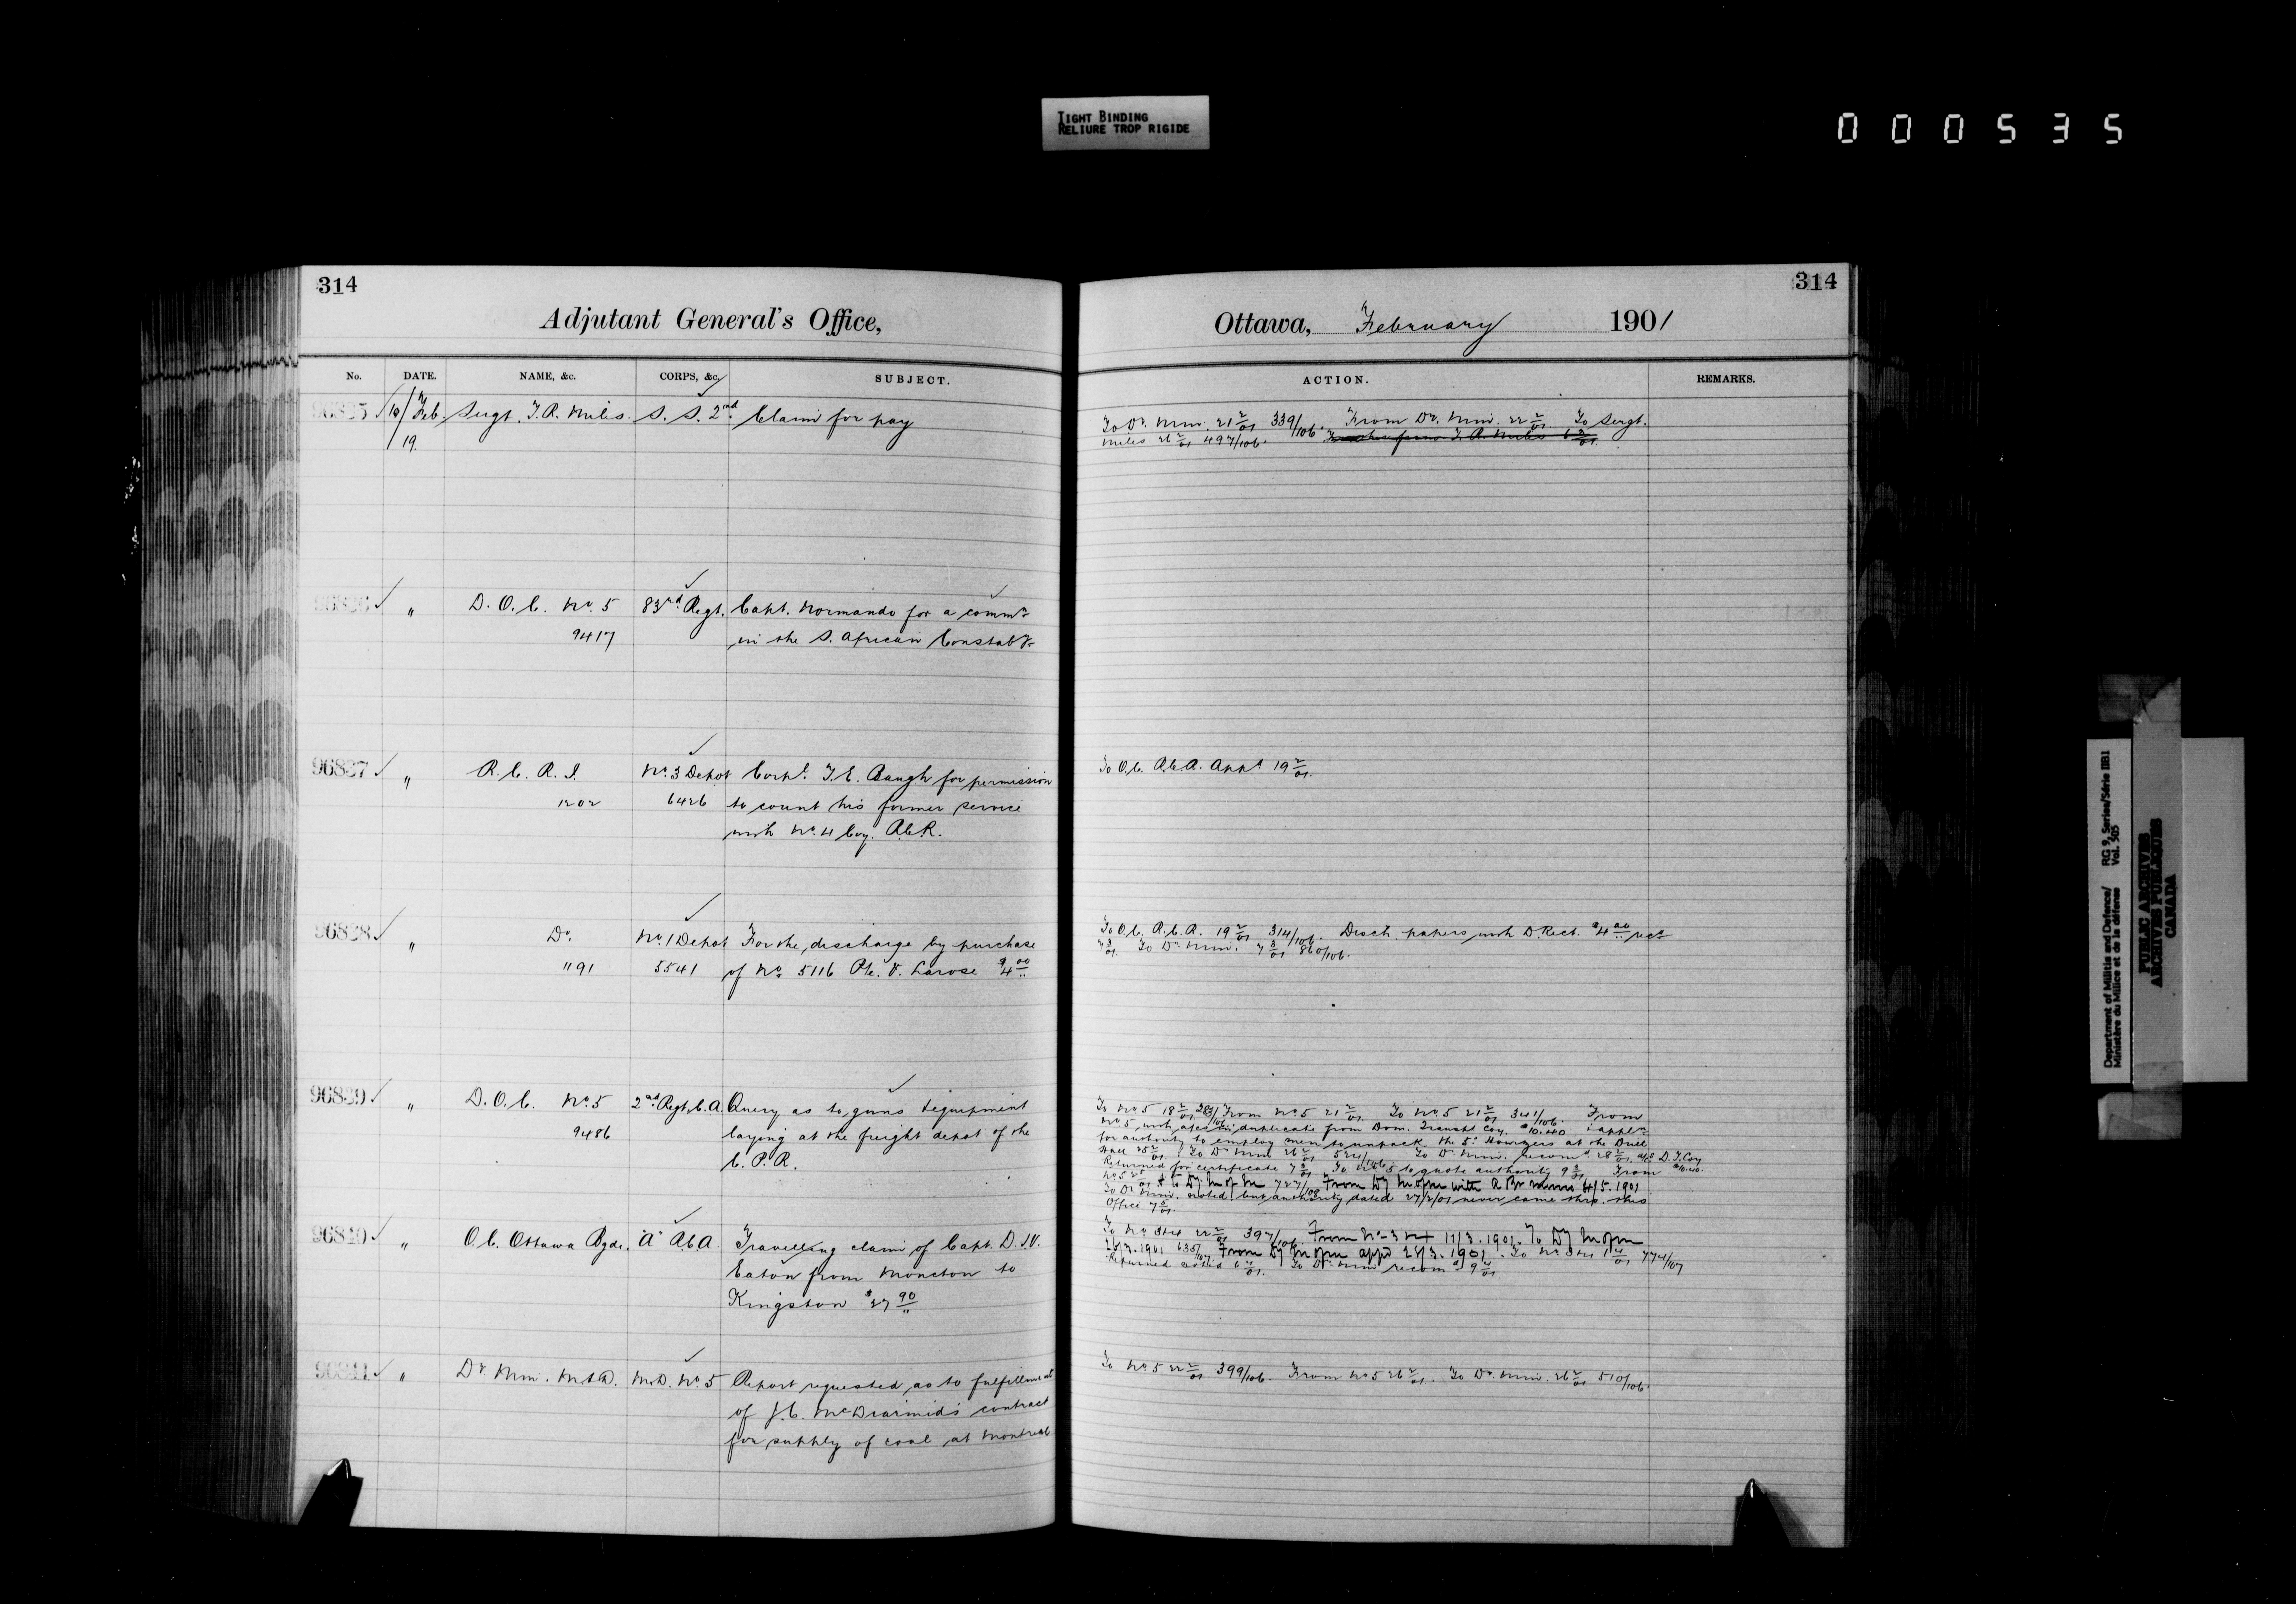 TIGHT BINDING
RELIURE TROP RIGIDE
000535
314
Adjutant General's Office,
No. DATE. NAME, &c. CORPS, &c. SUBJECT.
96835 18/ Feb. Sergt. T. R. Miles. S. S. 2nd Claim for pay
19.
96836 " D. O. C. No. 5 83rd Regt. Capt. Normando for a commn
9417 in the S. African Constaby
96837 " R. C. R. I. No. 3 Depot Corpl. T. E. Baugh for permission
1202 6426 to count his former service
with No. 4 Coy. R.C.R.
96838 " Do. No. 1 Depot For the discharge by purchase
1191 5541 of No. 5116 Pte. V. Larose $4 00
96839 " D. O. C. No. 5 2nd Regt. C. A. Query as to guns & equipment
9486 laying at the freight depot of the
C. P. R.
96840 " O. C. Ottawa Bgde. "A" R.C.A. Travelling claim of Capt. D. I. V.
Eaton from Moncton to
Kingston $27 90
96841 " Dy. Min. M. & D. M.D. No. 5 Report requested as to fulfillment
of J. C. McDiarmid's contract
for supply of coal at Montreal
314
Ottawa, February 1901
ACTION. REMARKS.
To Dy. Min. 21 2/01 339/106. From Dy. Min. 22 2/01 To Sergt.
Miles 26 2/01 497/106. T. R. Miles 6 3/01
To O.C. R.C.A. Appd 19 2/01.
To O.C. R.C.A. 19 2/01 314/106. Disch. papers with D. Rect. $4 00 recd
7 3/01. To Dy. Min. 7 3/01 860/106.
To No 5 18 2/01 283/106 From No 5 21 2/01 To No 5 21 2/01 341/106. From
No 5, with in duplicate from Dom. Transpt Coy. $10.40 & appln
for authority to employ men to unpack the 5" Howrzers at the Drill
Hall 25 2/01. To Dy. Min. 26 2/01 524/106 To Dy. Min. recomd 28 2/01 D. T. Coy
Returned for certificate 7 3/01. To No 5 to quote authority 9 3/01 From $10.40.
No 5 & to Dy. M of M 727/108 From Dy M of M with a Br memo 4/5.1901
To Dy. Min. noted but authority dated 27/2/01 never came thro. this
Office 7 5/01.
To No 3 & 4 22 2/01 397/106. From No-3 & 4 11/3.1901. To Dy M of M
16/3.1901 635/107 From Dy M of M appd 28/3.1901. To No 3 & 4 1 4/01 774/107
Returned noted 6 4/01. To Dy. Min recomd 9 4/01
To No 5 22 2/01 399/106. From No 5 26 2/01. To Dy. Min. 26 2/01 510/106.
Department of Militia and Defence/ RG 9, Series/Série IIB1
Ministère du Milice et de la défense Vol. 505
PUBLIC ARCHIVES
ARCHIVES PUBLIQUES
CANADA